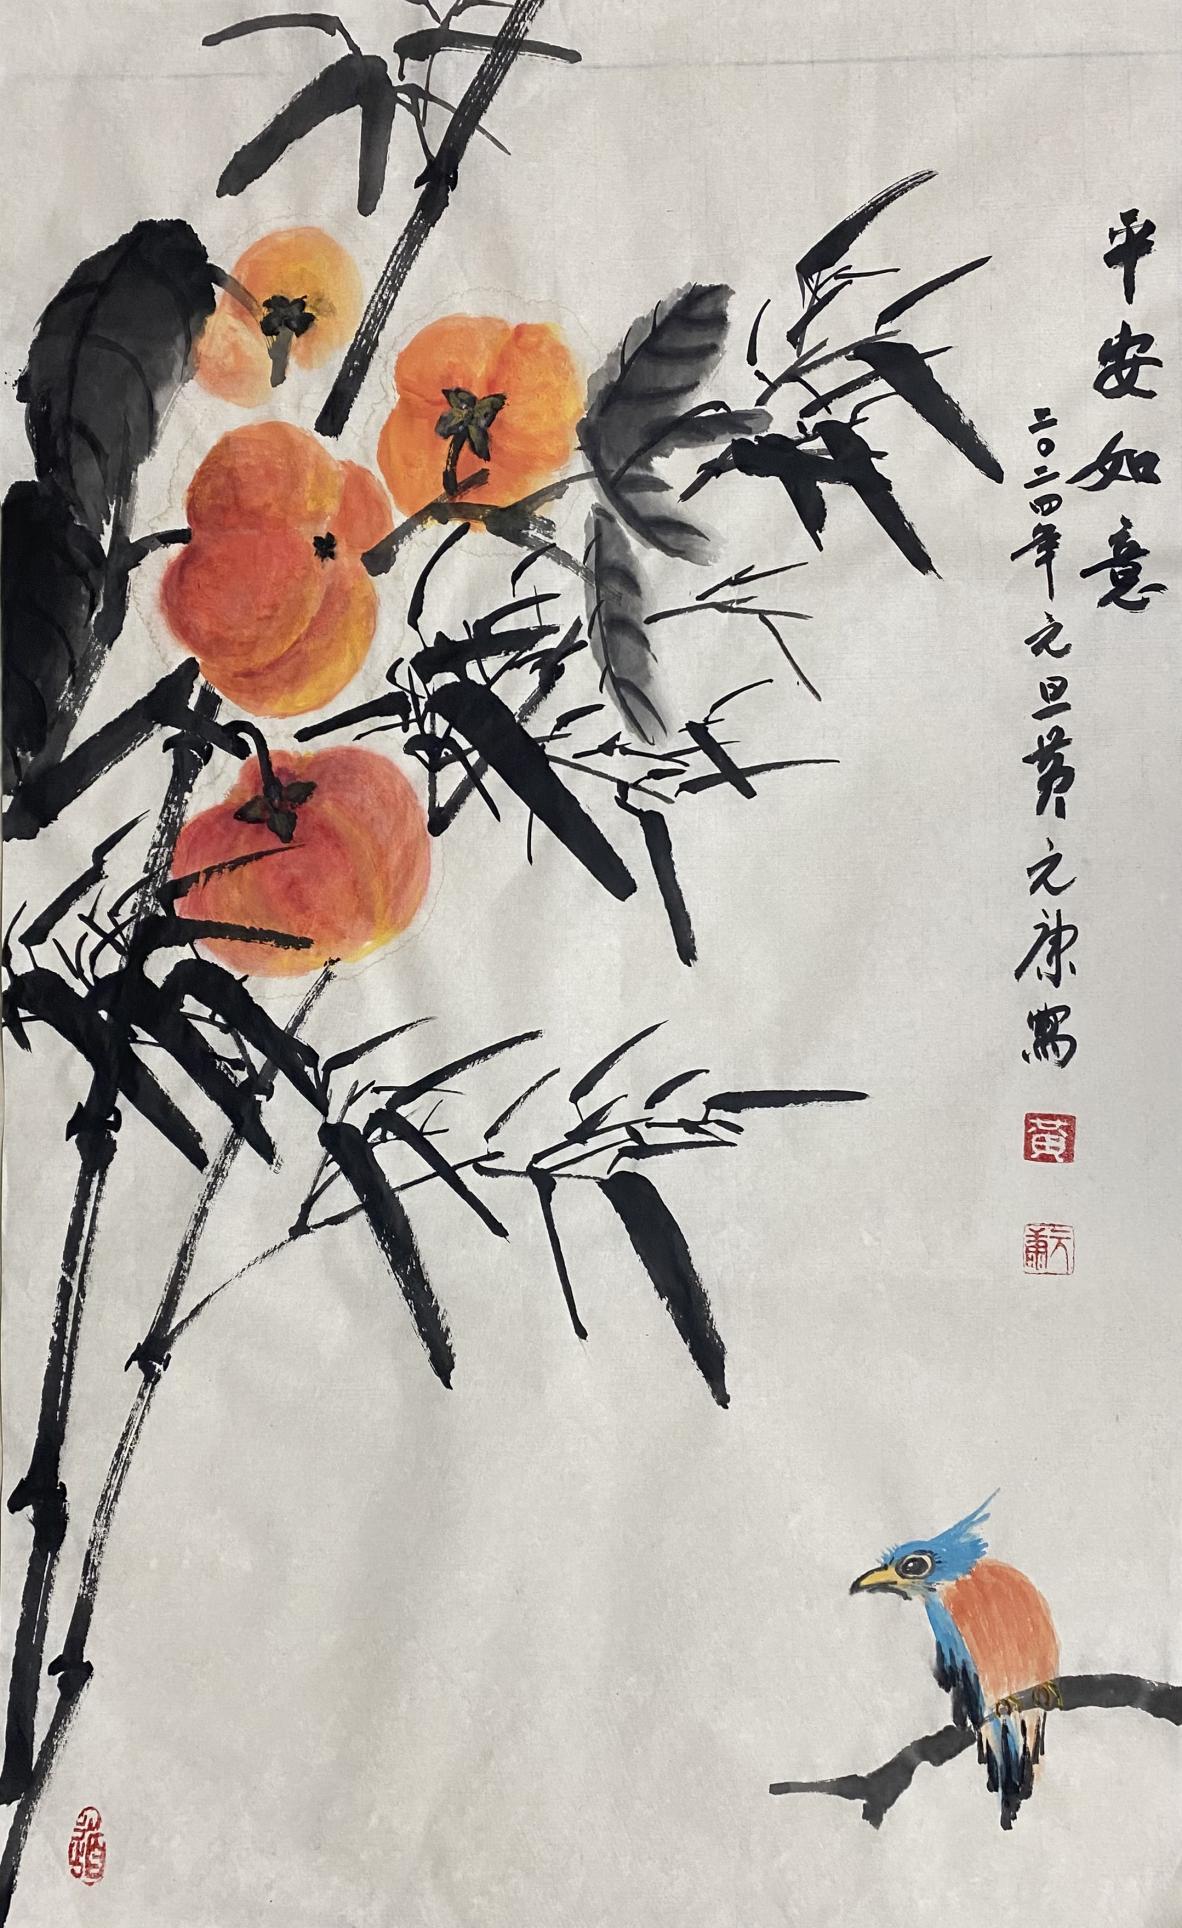 平安如意
二〇二四年元旦黄元康寫
黃
元康